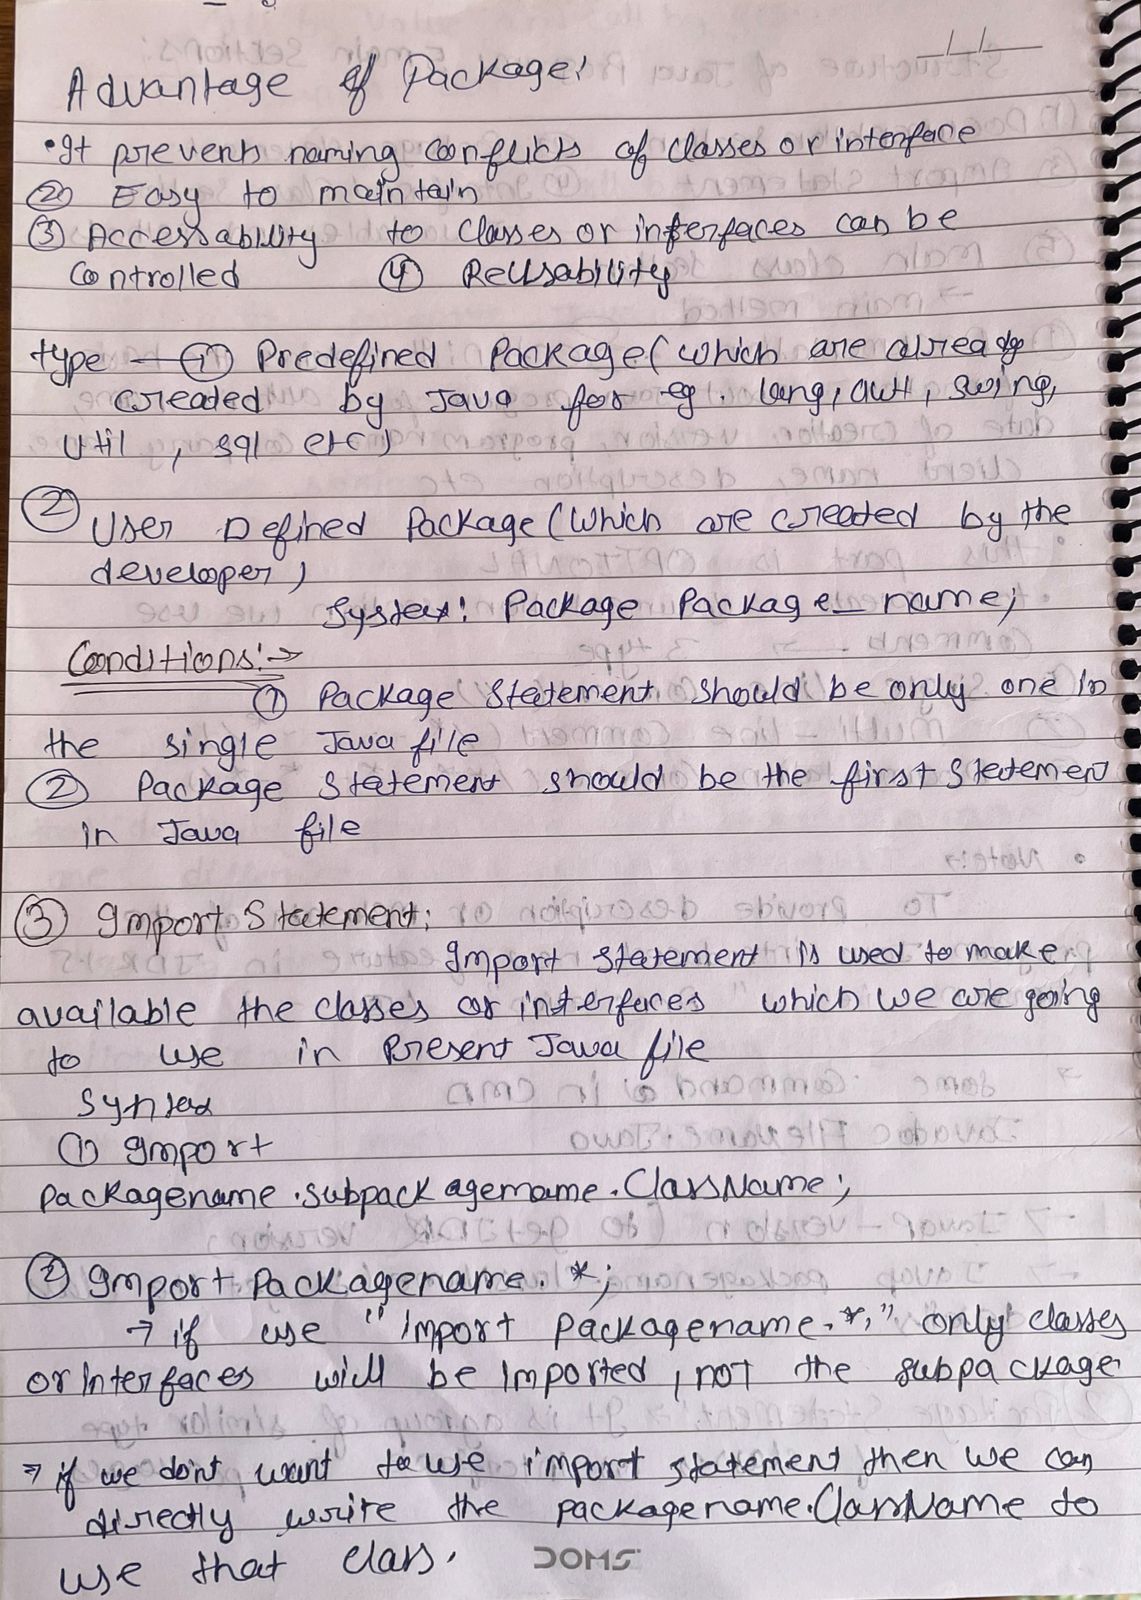 Advantage of Package:
• It prevents naming conflicts of classes or interface
② Easy to maintain
③ Accessability to classes or interfaces can be
controlled ④ Reusability
type — ① Predefined Package (which are already
created by Java for eg. lang, awt, swing,
util, sql etc)
② User Defined Package (which are created by the
developer)
System: Package Package_name;
Conditions:→
① Package Statement should be only one in
the single Java file
② Package Statement should be the first Statement
in Java file
③ Import Statement:
Import statement is used to make
available the classes or interfaces which we are going
to use in Present Java file
Syntax
① Import
Packagename.subpackagename.ClassName;
② Import Packagename.*;
→ if use "import packagename.*;" only classes
or Interfaces will be Imported, not the subpackage
→ if we don't want to use import statement then we can
directly write the packagename.ClassName to
use that class.
DOMS